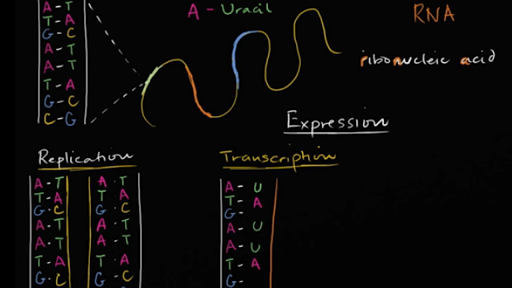 A - T
T - A
G - C
A - T
A - T
T - A
G - C
C - G
A - Uracil
RNA
ribonucleic acid
Expression
Replication
Transcription
A - T A - T
T - A T A
G - C G C
A - T A T
A - T A T
T - A T A
G - C G - C
A - U
T - A
G -
A - U
A - U
T - A
G -